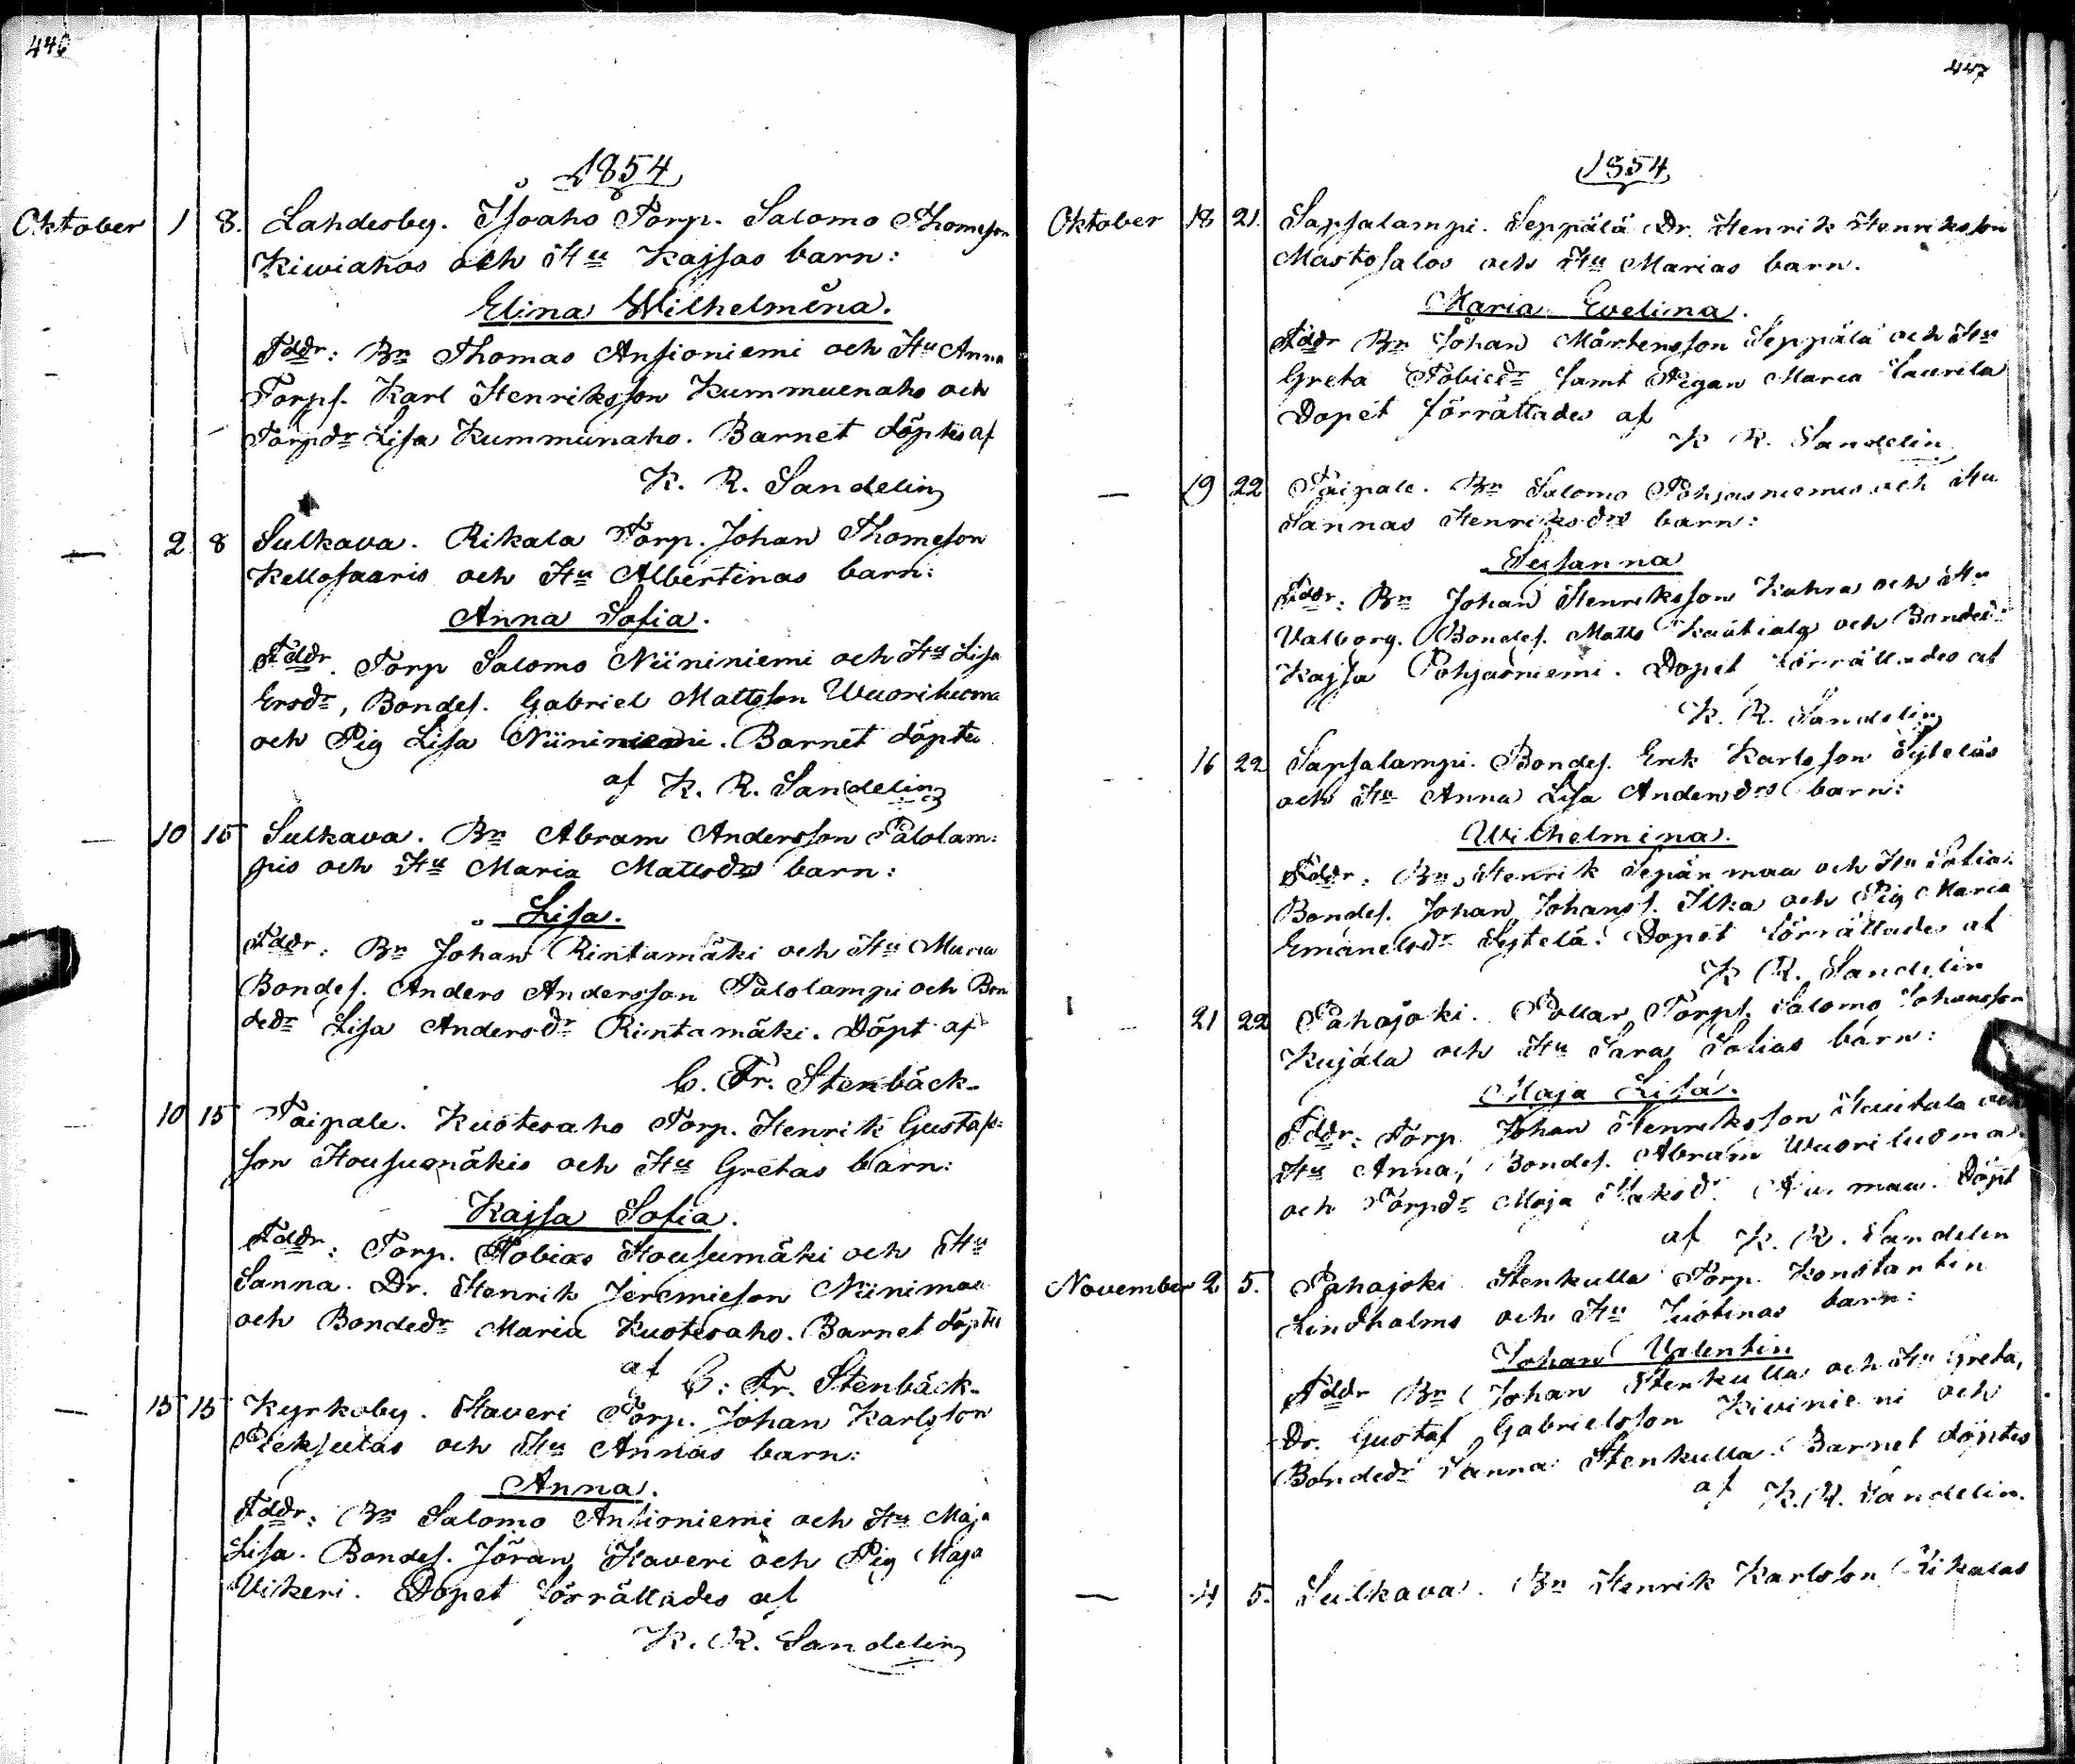 446
1854
Oktober 1 8. Lahdesby. Isoaho Torp. Salomo Thomeson
Kiwiahos och Hu Kajsas barn:
Elina Wilhelmina.
Fddr: Bn Thomas Ansioniemi och Hu Anna
Torps. Karl Henriksson Kummuenaho och
Torpdr Lisa Kummunaho. Barnet döptes af
K. R. Sandelin
— 2 8 Sulkava. Rikala Torp. Johan Thomeson
Kellosaaris och Hu Albertinas barn:
Anna Sofia.
Fddr. Torp Salomo Niininiemi och Hu Lisa
Ersdr, Bondes. Gabriel Mattsson Wuoriluoma
och Pig Lisa Niininiemi. Barnet döptes
af K. R. Sandelin
— 10 15 Sulkava. Bn Abram Andersson Palolam:
pis och Hu Maria Mattsdrs barn:
Lisa.
Fddr: Bn Johan Rintamäki och Hu Maria
Bondes. Anders Andersson Palolampi och Bon
dedr Lisa Andersdr Rintamäki. Döpt af
C. Fr. Stenbäck.
— 10 15 Taipale. Kuotesaho Torp. Henrik Gustafs:
son Housumäkis och Hu Gretas barn:
Kajsa Sofia.
Fddr: Torp. Tobias Housumäki och Hu
Sanna. Dr. Henrik Jeremieson Niinimaa
och Bondedr Maria Kuotesaho. Barnet döptes
af C: Fr. Stenbäck.
— 15 15 Kyrkoby. Haveri Torp. Johan Karlsson
Pieksutas och Hu Annas barn:
Anna.
Fddr: Bn Salomo Ansioniemi och Hu Maja
Lisa. Bondes. Jöran Haveri och Pig Maja
Vikeri. Dopet förrättades af
K. R. Sandelin
447
1854
Oktober 18 21. Sapsalampi. Seppälä Dr. Henrik Henriksson
Mastosalos och Hu Marias barn.
Maria Evelina.
Fddr Bn Johan Mårtensson Seppälä och Hu
Greta Tobiedr samt Pigan Maria Laurila
Dopet förrättades af
K R. Sandelin
— 19 22 Taipale. Bn Salomo Pohjasniemis och Hu
Sannas Henriksdrs barn:
Susanna
Fddr: Bn Johan Henriksson Kahra och Hu
Valborg. Bondes. Matts Kautiala och Bondedr
Kajsa Pohjasniemi. Dopet förrättades af
K. R. Sandelin
16 22 Sapsalampi. Bondes. Erik Karlsson Syteläs
och Hu Anna Lisa Andersdrs barn:
Wilhelmina.
Fddr: Bn Henrik Sepänmaa och Hu Sofia.
Bondes. Johan Johanss. Ilka och Pig Maria
Emanelsdr Sytelä. Dopet förrättades af
K R. Sandelin
— 21 22 Pahajoki. Pollar Torps. Salomo Johansson
Kujala och Hu Sara Sofias barn:
Maja Lisa.
Fddr: Torp. Johan Henriksson Huutala och
Hu Anna, Bondes. Abram Wuoriluoma
och Torpdr Maja Isaksdr Döpt
af K. R. Sandelin
November 2 5. Pahajoki Stenkulla Torp. Konstantin
Lindholms och Hu Justinas barn:
Johan Valentin
Fddr Bn Johan Stenkulla och Hu Greta,
Dr. Gustaf Gabrielsson Kiviniemi och
Bondedr Sanna Stenkulla. Barnet döptes
af K. R. Sandelin.
— 4 5. Sulkava. Bn Henrik Karlsson Rikalas